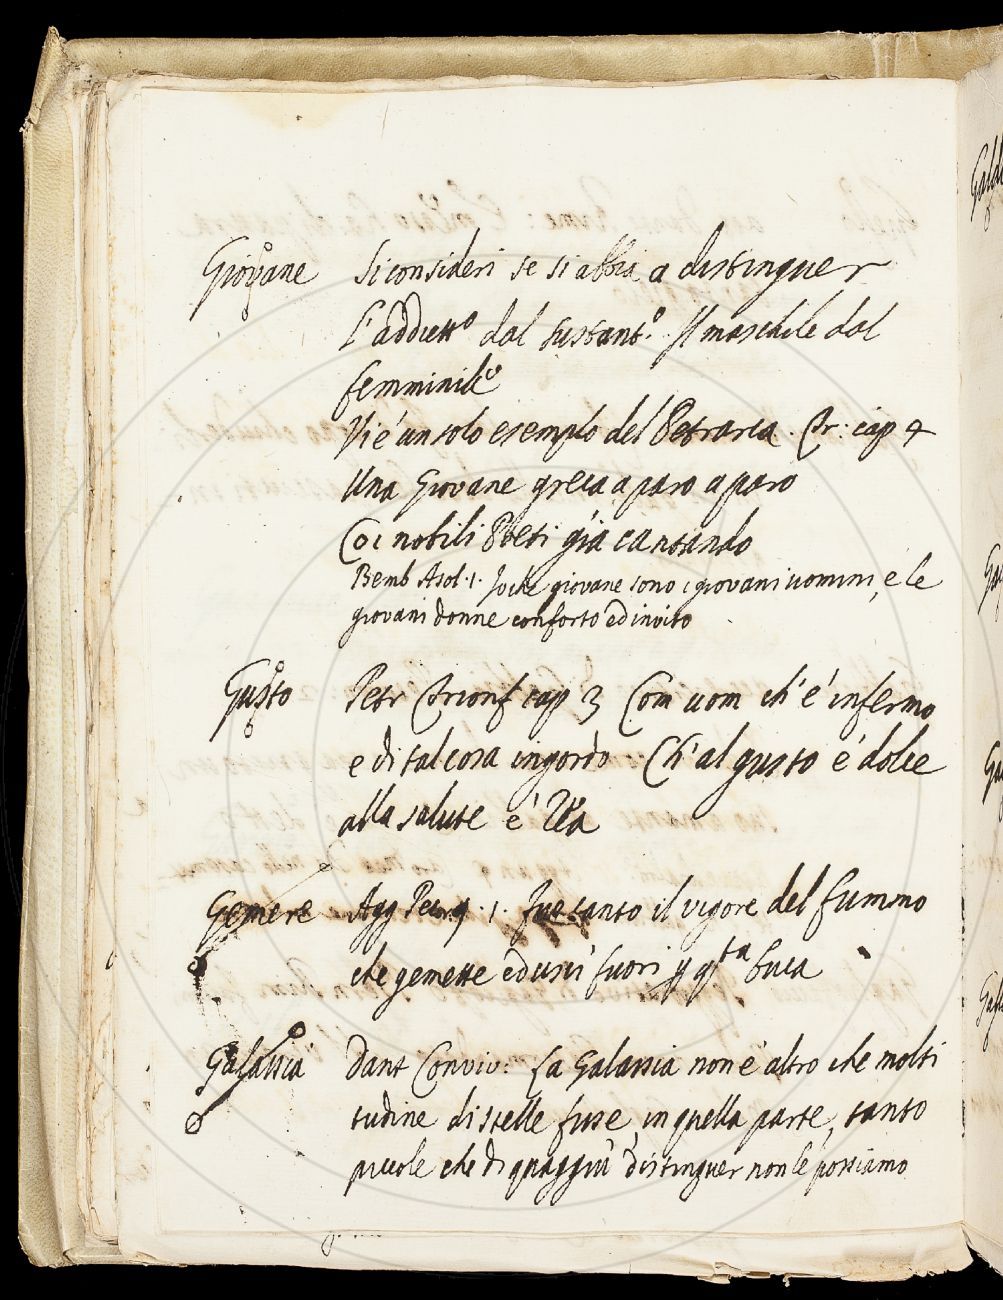 Giovane Si consideri se si abbia a distinguer
l'addiett.o dal sustant.o Il maschile dal
femminile
Vi è un solo esempio del Petrarca. Tr: cap 4
Una Giovane greca a paro a paro
Coi nobili Poeti già cantando
Bemb Asol. 1. giovane sono i giovani uomini, e le
giovani donne conforto ed invito
Gusto Petr Trionf cap 3 Com uom ch' è infermo
e di tal cosa ingordo Ch' al gusto è dolce
alla salute è Rea
Gemere Agg 1. Fue tanto il vigore del fummo
che gemette ed uscì fuori buca
Galassia Dant Conviv: La Galassia non è altro che molti
tudine di stelle fisse, in quella parte, tanto
piccole che di quaggiù distinguer non le possiamo